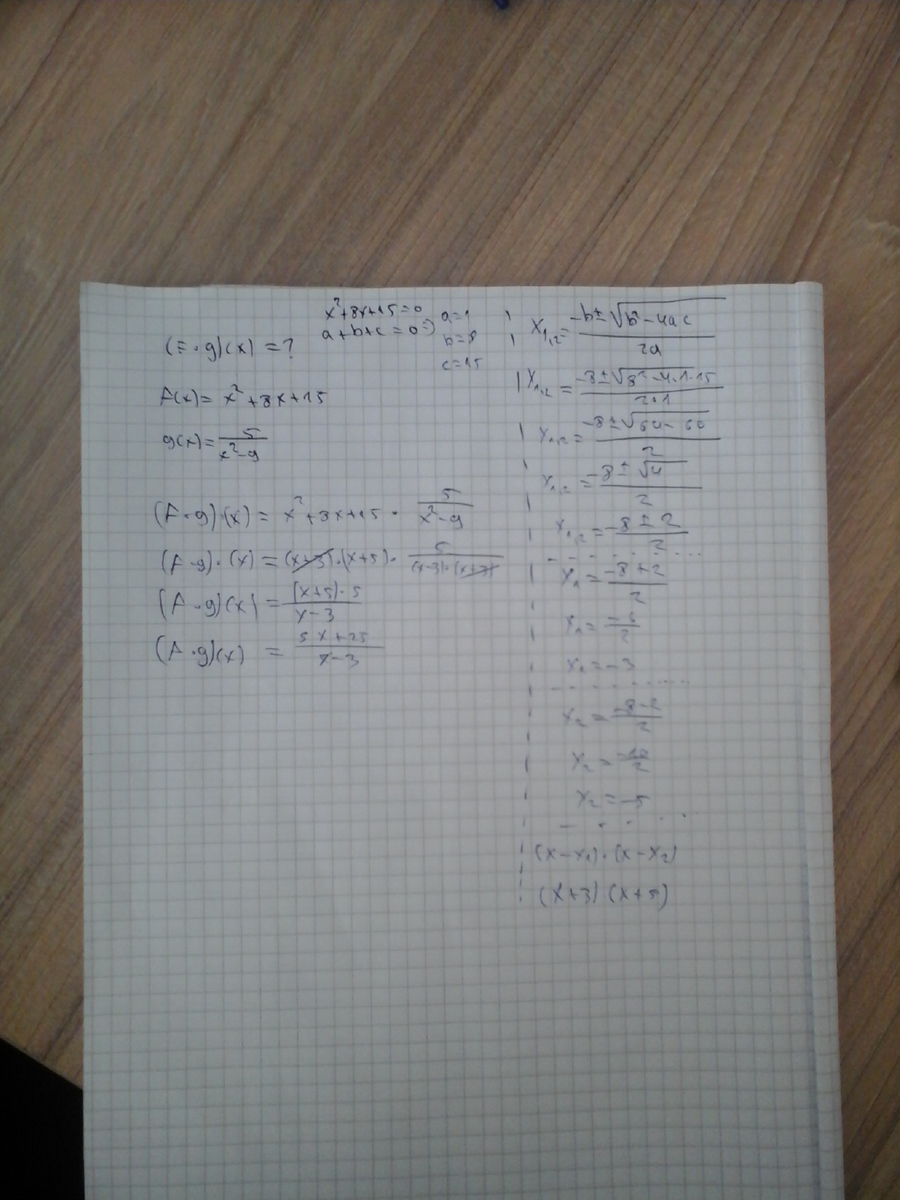 x²+8x+15=0
a+b+c=0=>
a=1
b=8
c=15
(F·g)(x)=?
f(x)=x²+8x+15
g(x)=5/(x²-9)
(f·g)·(x)=x²+8x+15·5/(x²-9)
(f·g)·(x)=(x+3)·(x+5)·5/((x-3)·(x+3))
(f·g)(x)=((x+5)·5)/(x-3)
(f·g)(x)=(5x+25)/(x-3)
x₁,₂=(-b±√(b²-4ac))/(2a)
x₁,₂=(-8±√(8²-4·1·15))/(2·1)
x₁,₂=(-8±√(64-60))/2
x₁,₂=(-8±√4)/2
x₁,₂=(-8±2)/2
x₁=(-8+2)/2
x₁=-6/2
x₁=-3
x₂=(-8-2)/2
x₂=-10/2
x₂=-5
(x-x₁)·(x-x₂)
(x+3)(x+5)